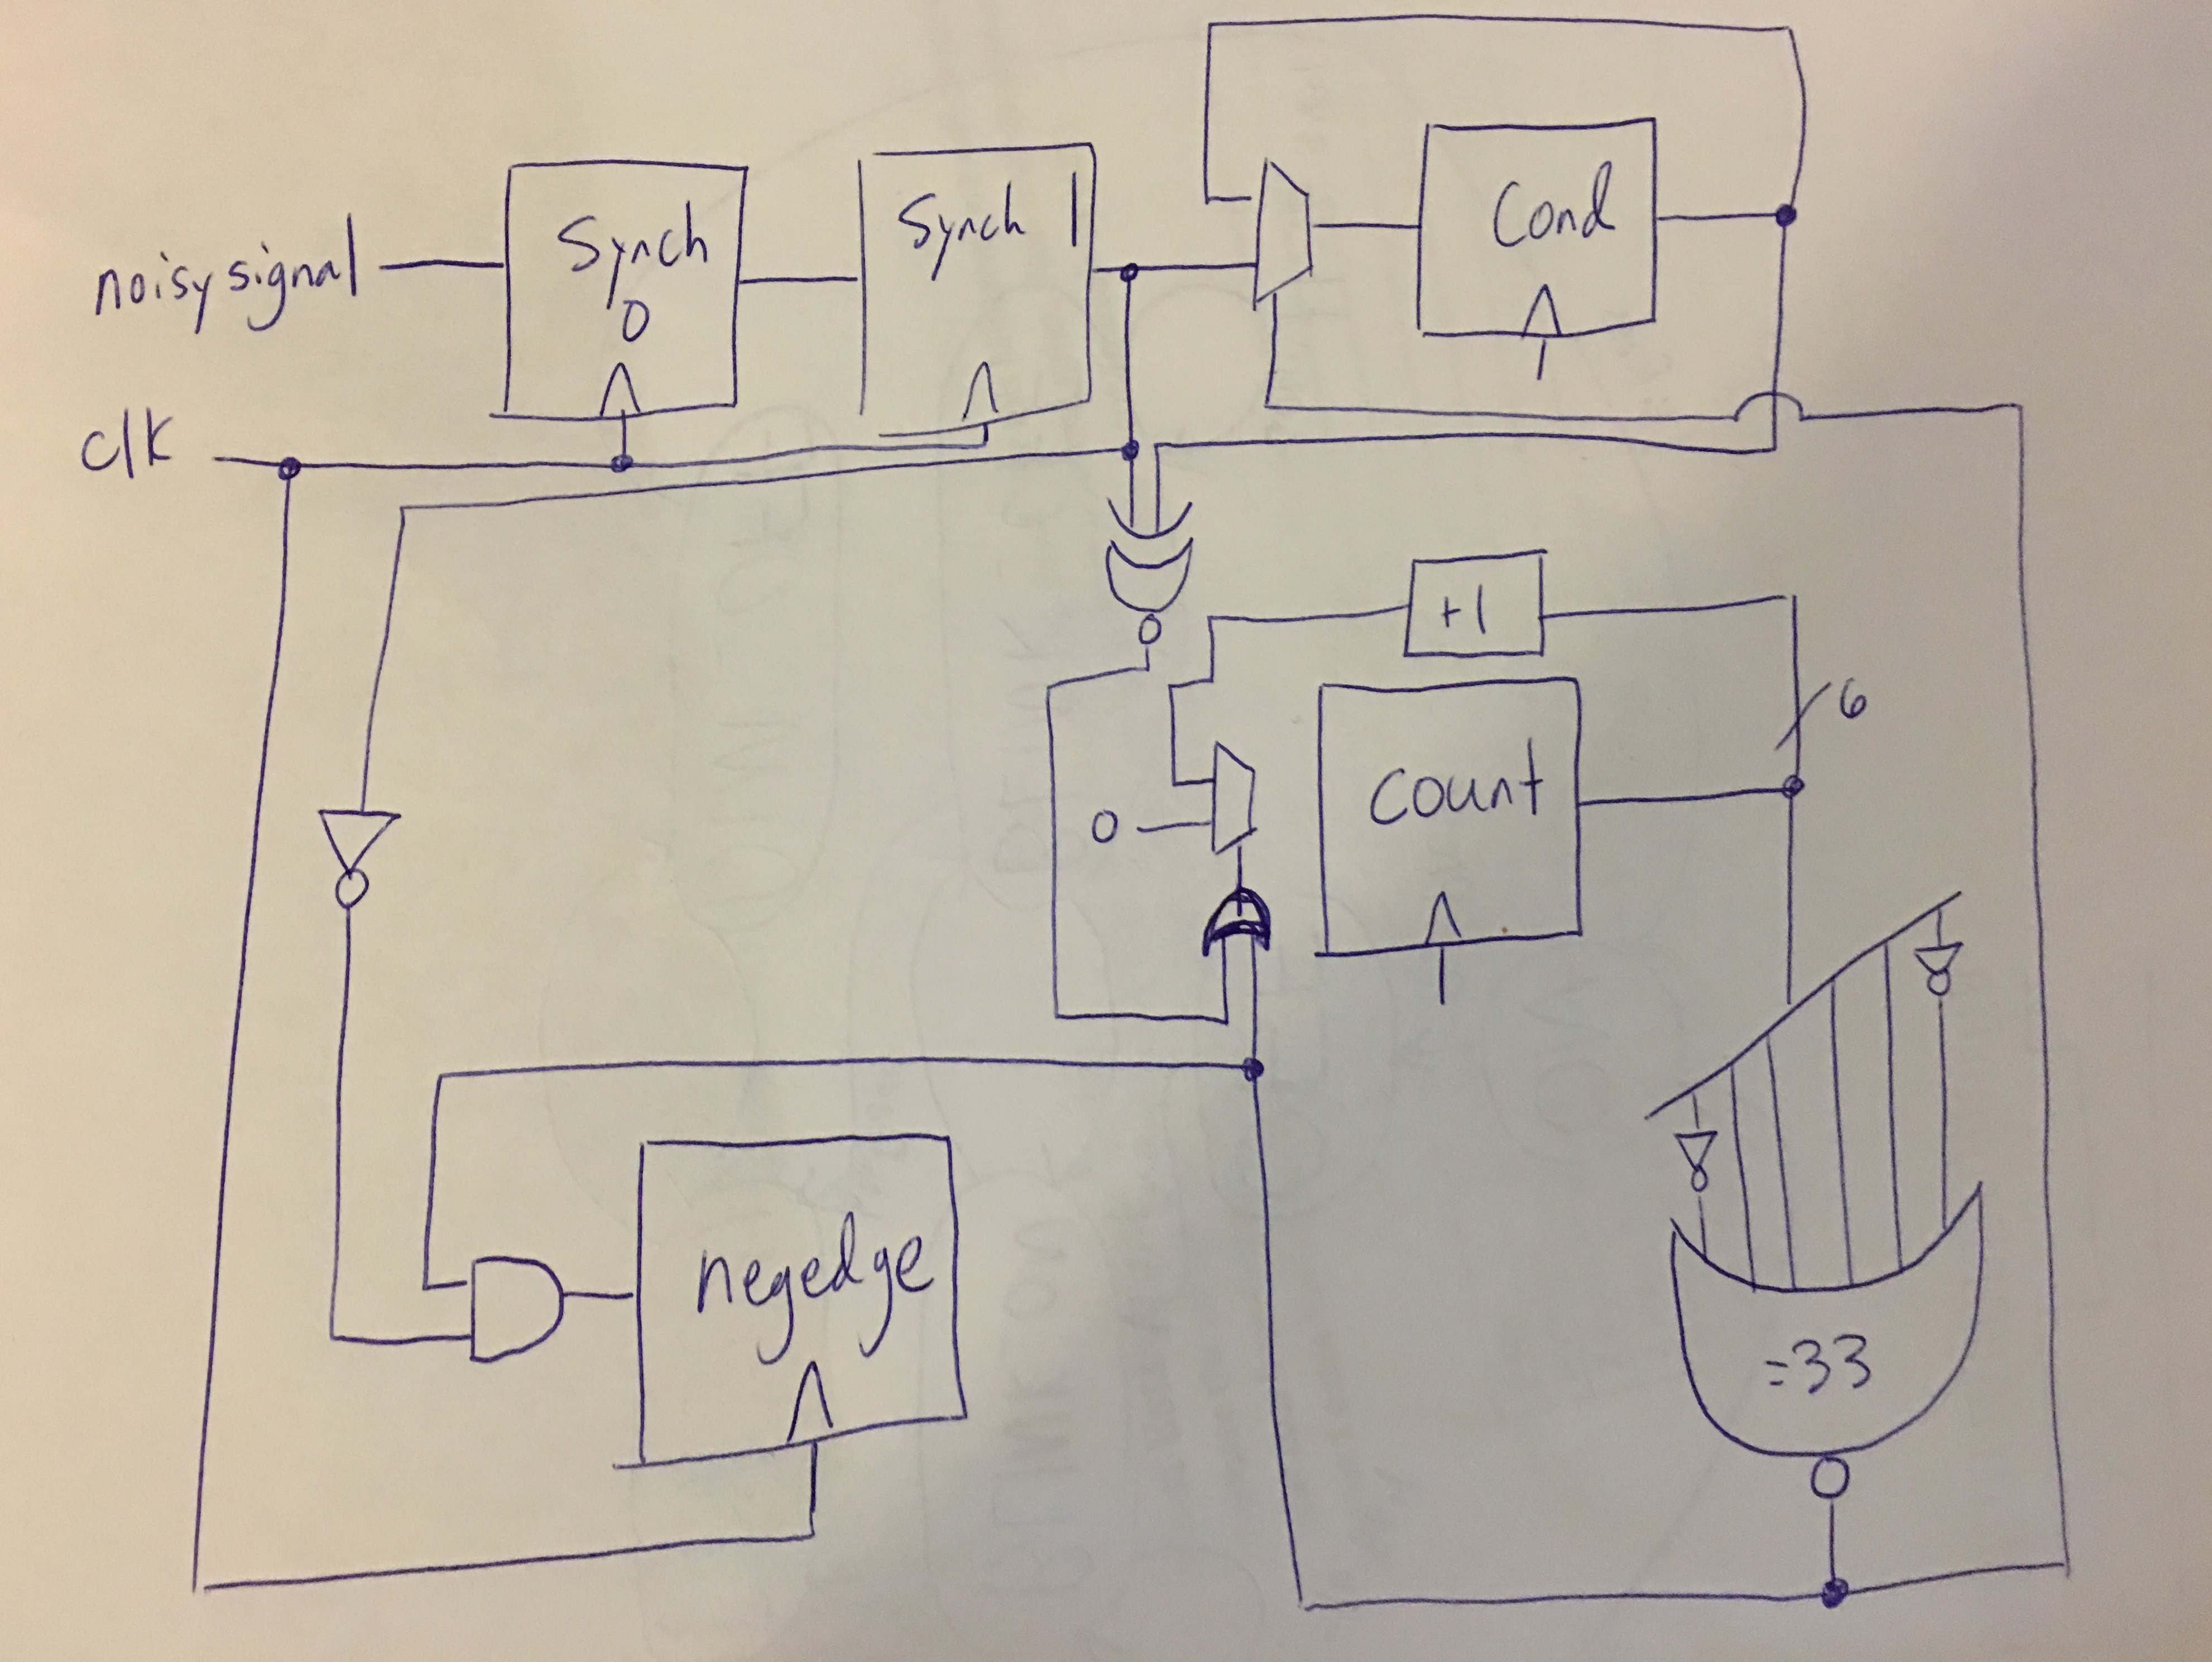 noisy signal
Synch
0
Synch 1
Cond
clk
+1
6
count
0
negedge
=33